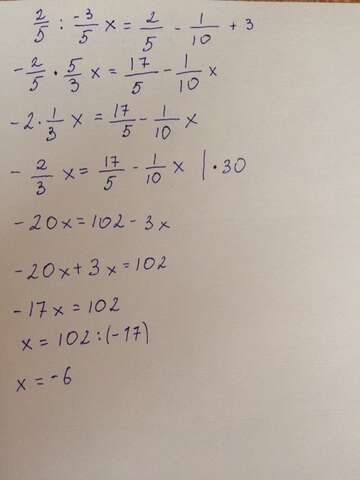 2/5 : -3/5 x = 2/5 - 1/10 + 3
-2/5 · 5/3 x = 17/5 - 1/10 x
-2 · 1/3 x = 17/5 - 1/10 x
- 2/3 x = 17/5 - 1/10 x | · 30
-20x = 102 - 3x
-20x + 3x = 102
-17x = 102
x = 102 : (-17)
x = -6